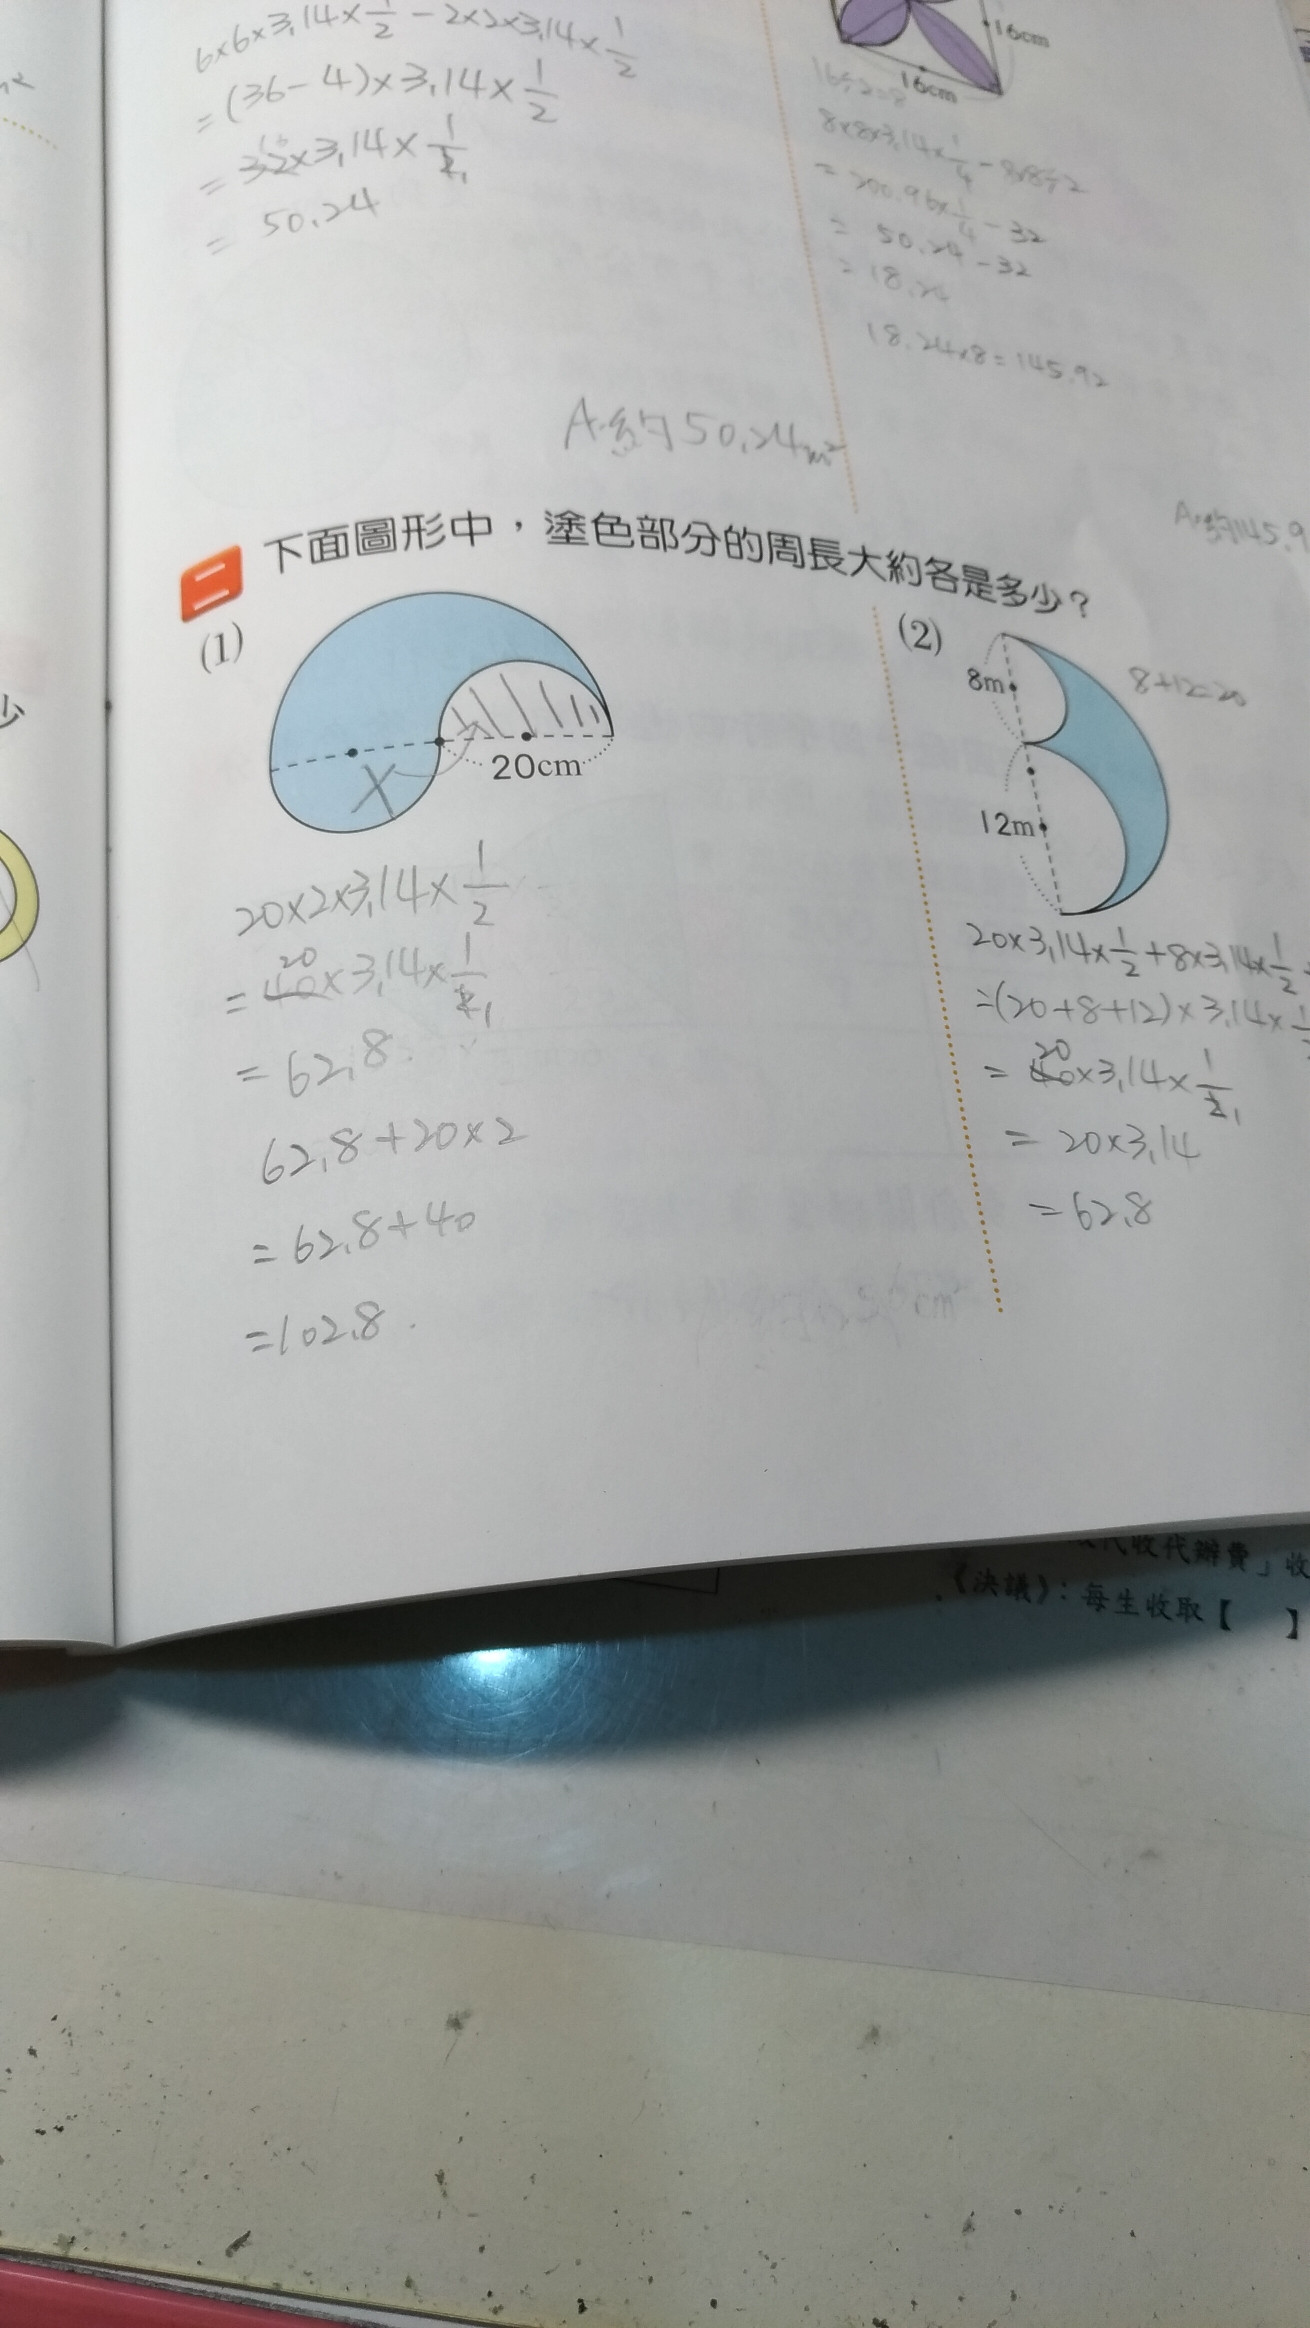 6×6×3.14×1/2-2×2×3.14×1/2
=(36-4)×3.14×1/2
=32×3.14×1/2
=50.24
A:約50.24m²
16cm
16cm
16÷2=8
8×8×3.14×1/4-8×8÷2
=200.96×1/4-32
=50.24-32
=18.24
18.24×8=145.92
A:約145.9
少
二 下面圖形中，塗色部分的周長大約各是多少？
(1)
20cm
20×2×3.14×1/2
20
=40×3.14×1/2 1
=62.8
62.8+20×2
=62.8+40
=102.8
(2)
8m
8+12=20
12m
20×3.14×1/2+8×3.14×1/2
=(20+8+12)×3.14×
20
=40×3.14×1/2 1
=20×3.14
=62.8
代收代辦費」收
《決議》：每生收取【 】